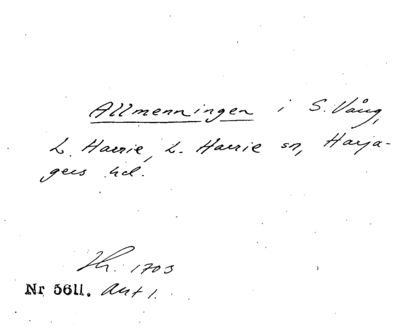 Allmenningen i S. Vång,
L. Harrie, L. Harrie sn, Harja-
gers hd.
Th. 1703
Nr 5611. Akt 1.